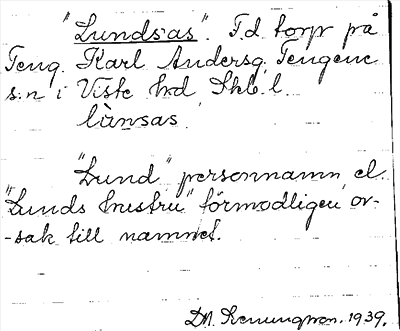 "Lundsas". F.d. torp på
Teng. Karl Andersg. Tengene
s:n i Viste hrd Skb. l.
lùnsas.
"Lund" personnamn el.
"Lunds hustru" förmodligen or-
-sak till namnet.
1939.